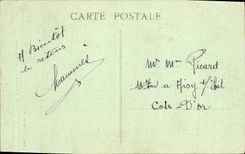 CARTE POSTALE
A Bientôt
le retour
Mr Mme Picard
à Aisy s/
Cote D'or